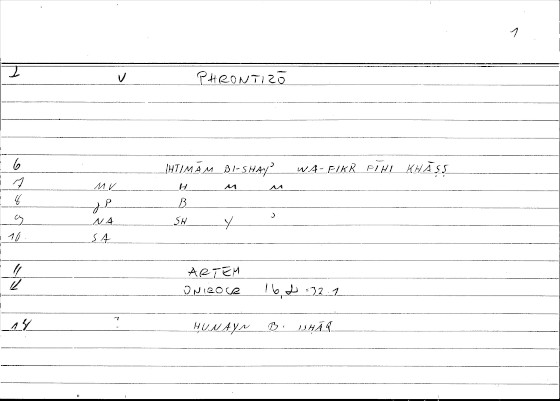 1
1 V PHRONTIZŌ
6 IHTIMĀM BI-SHAYʾ WA-FIKR FĪHI KHĀṢṢ
7 MV H M M
8 JP B
9 NA SH Y ʾ
10 SA
11 ARTEM
12 ONIROCR 16,
14 ? ḤUNAYN B.